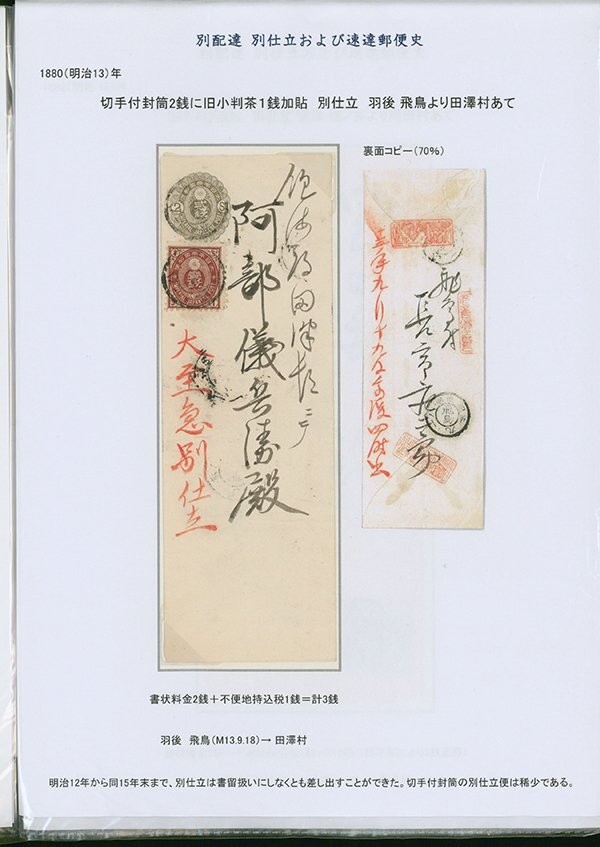 別配達 別仕立および速達郵便史
1880(明治13)年
切手付封筒2銭に旧小判茶1銭加貼 別仕立 羽後 飛鳥より田澤村あて
裏面コピー(70%)
阿部儀兵衛殿
大至急別仕立
書状料金2銭+不便地持込税1銭=計3銭
羽後 飛鳥(M13.9.18)→ 田澤村
明治12年から同15年末まで、別仕立は書留扱いにしなくとも差し出すことができた。切手付封筒の別仕立便は稀少である。